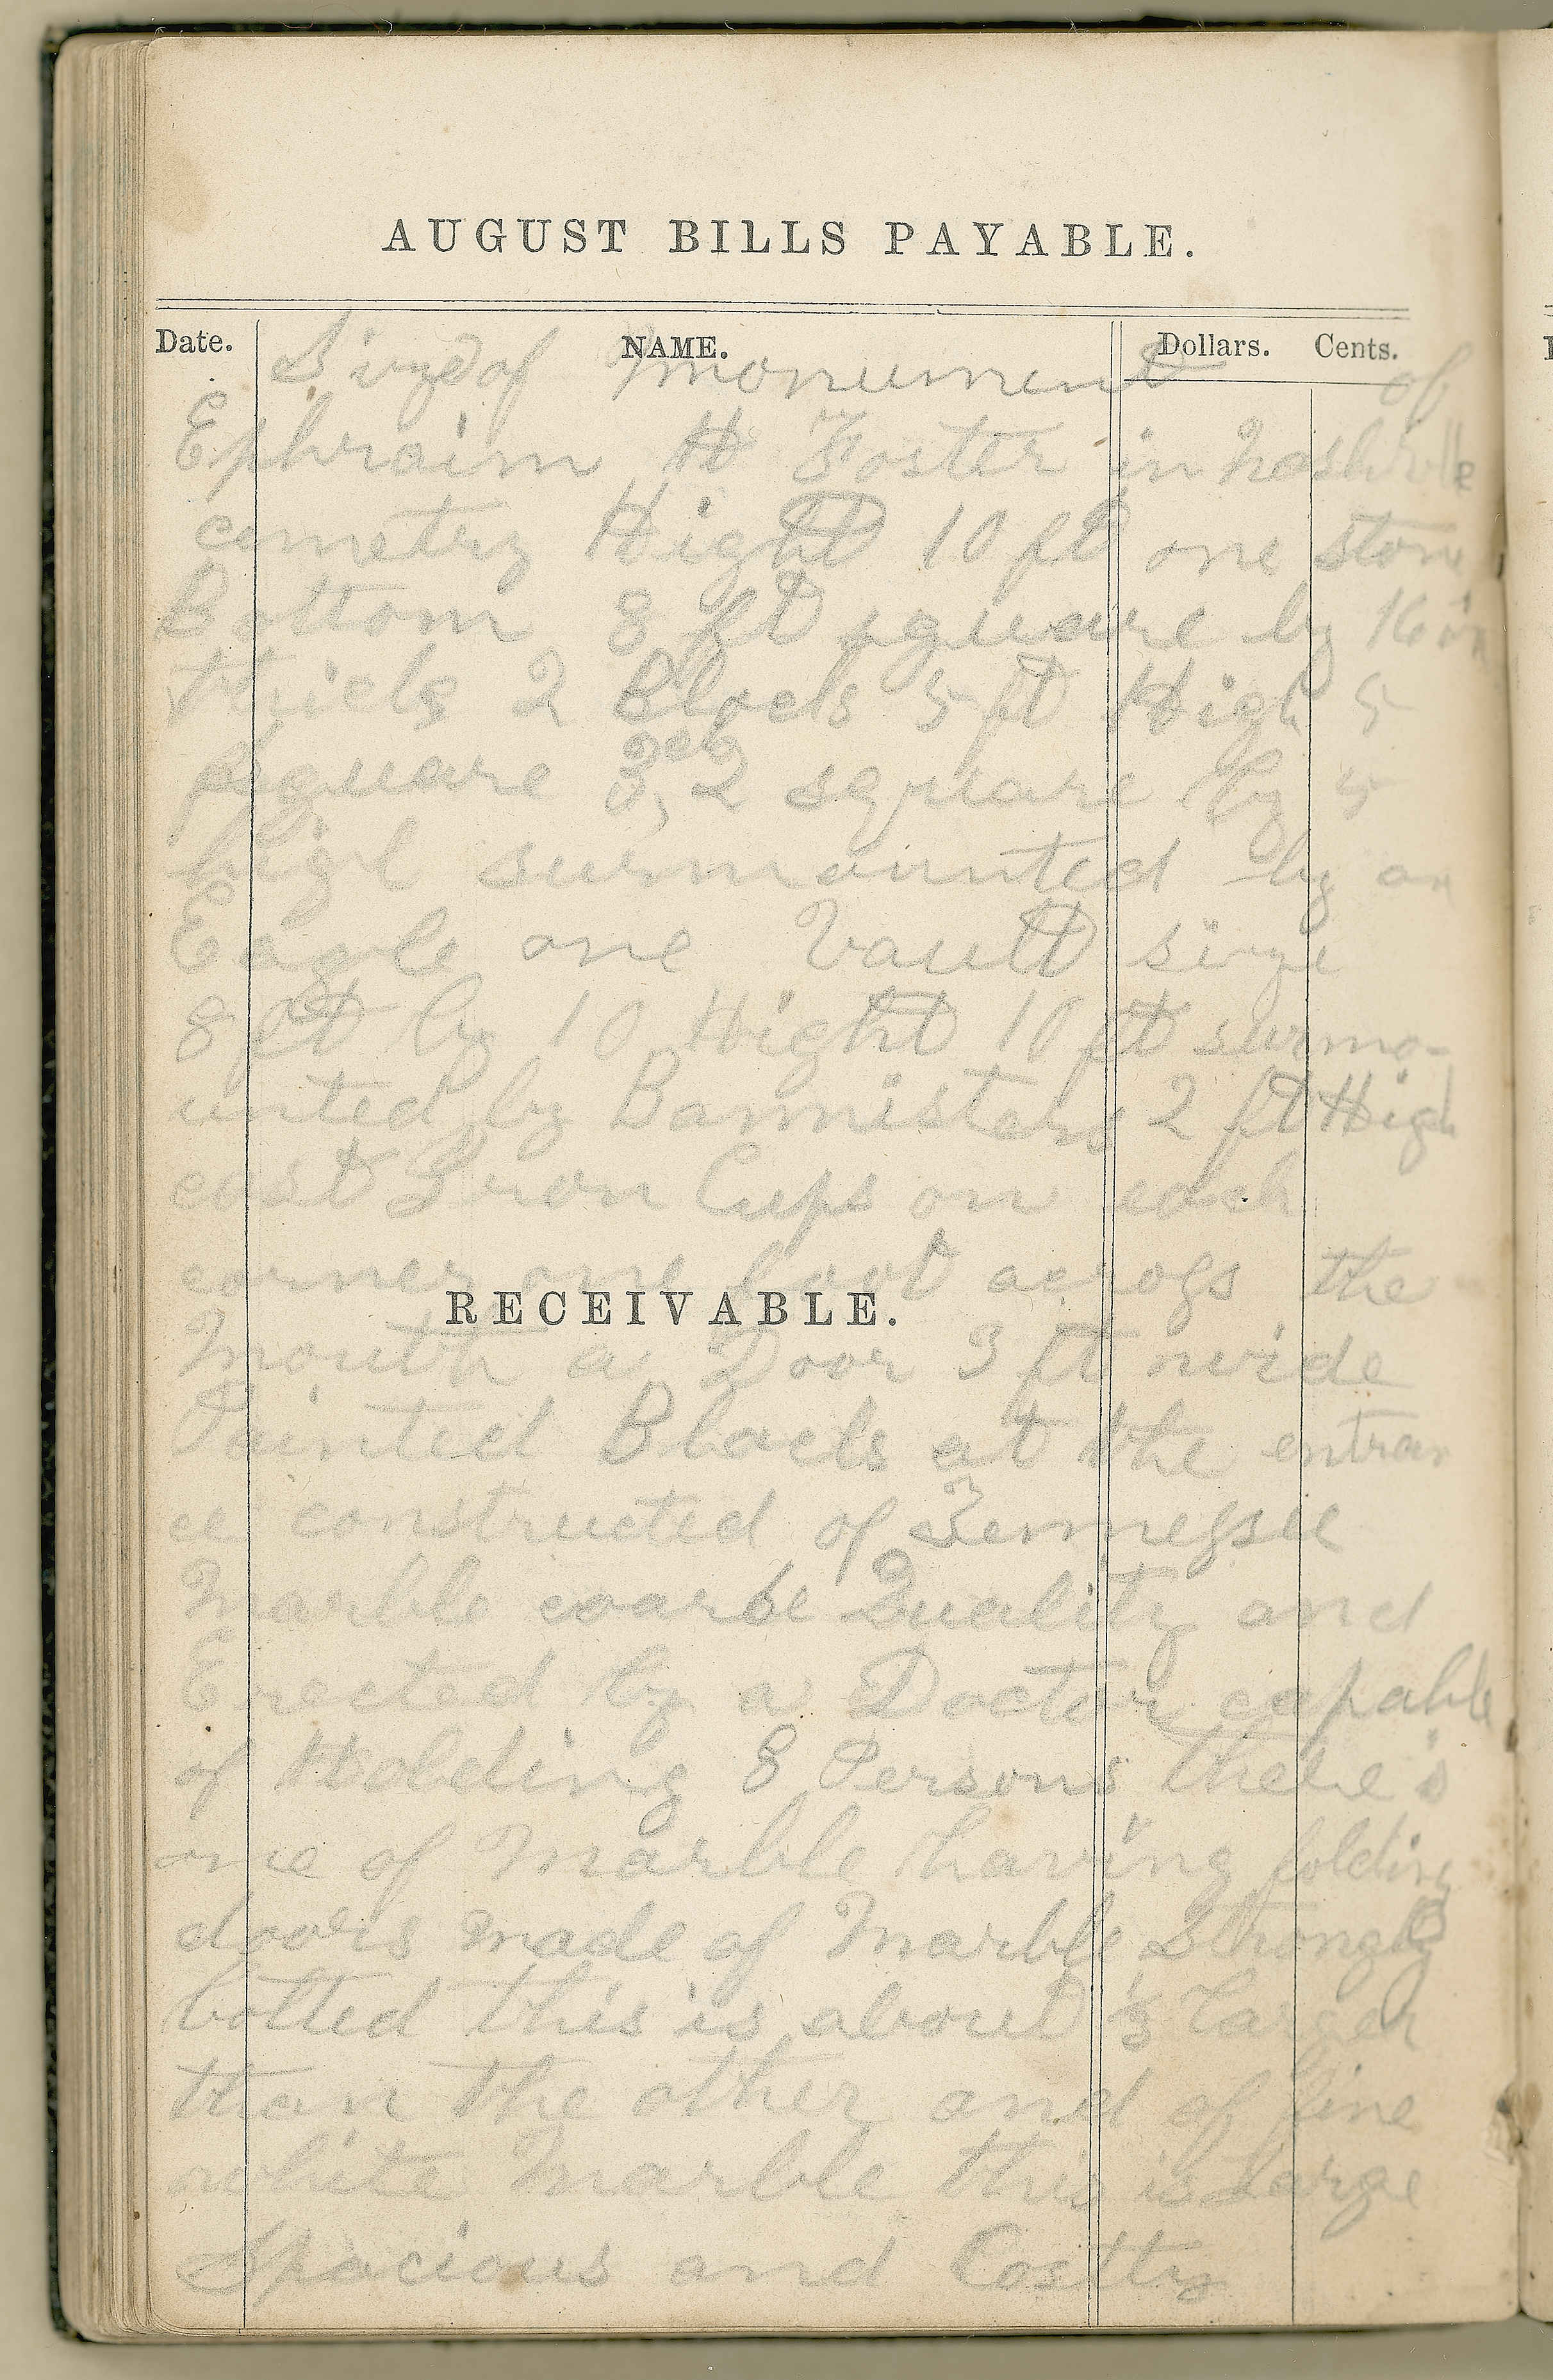 AUGUST BILLS PAYABLE.
Date. NAME. Dollars. Cents.
Sized of Monument of
Ephraim H Foster in Nashville
cemetry Hight 10 ft one stone
Bottom 8 ft square by 16 in
thick 2 Block 5 ft High 5
square 3,2 square by 5
high surmounted by an
Eagle one Vault size
8 ft by 10 Hight 10 ft surmo-
unted by Bannisters 2 ft High
cast Iron Cups on each
corner one foot across the
RECEIVABLE.
Mouth a Door 3 ft wide
Painted Black at the entran
ce constructed of Tennessee
Marble coarse Quality and
Erected by a Doctor capable
of Holding 8 Persons there's
one of Marble having folding
doors made of Marble Strongly
bolted this is about 1/3 Larger
than the other and of fine
white Marble this is Large
Spacious and Costly